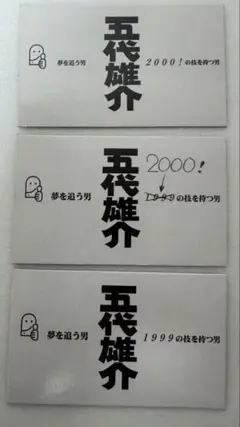 夢を追う男
五代雄介
2000!の技を持つ男
夢を追う男
五代雄介
2000!
1999の技を持つ男
夢を追う男
五代雄介
1999の技を持つ男